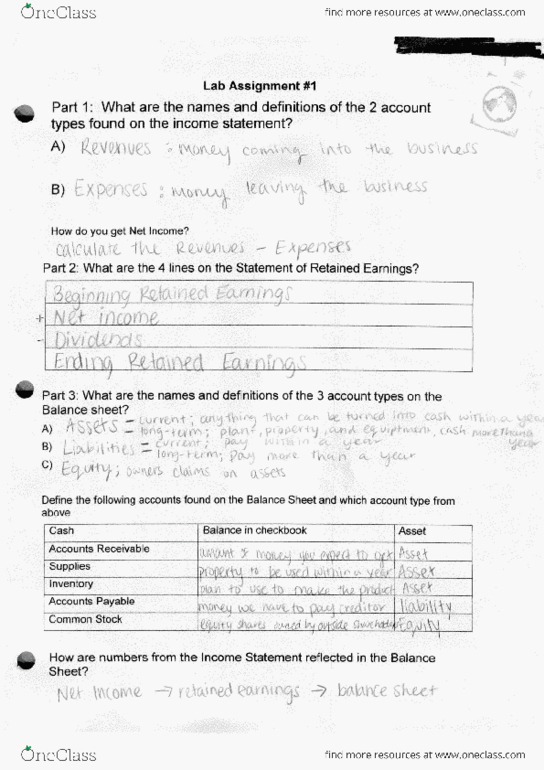 OneClass
find more resources at www.oneclass.com
Lab Assignment #1
Part 1: What are the names and definitions of the 2 account
types found on the income statement?
A) Revenues : money coming into the business
B) Expenses : money leaving the business
How do you get Net Income?
calculate the Revenues - Expenses
Part 2: What are the 4 lines on the Statement of Retained Earnings?
Beginning Retained Earnings
+ Net income
- Dividends
Ending Retained Earnings
Part 3: What are the names and definitions of the 3 account types on the
Balance sheet?
A) Assets - current; anything that can be turned into cash within a year
long-term; plant, property, and equiptment, cash more than a year
B) Liabilities = current; pay within a year
long-term; pay more than a year
C) Equity; owners claims on assets
Define the following accounts found on the Balance Sheet and which account type from
above
Cash Balance in checkbook Asset
Accounts Receivable amount of money you expect to get Asset
Supplies property to be used within a year Asset
Inventory plan to use to make the product Asset
Accounts Payable money we have to pay creditor liability
Common Stock equity shares owned by outside Equity
How are numbers from the Income Statement reflected in the Balance
Sheet?
Net Income → retained earnings → balance sheet
OneClass
find more resources at www.oneclass.com